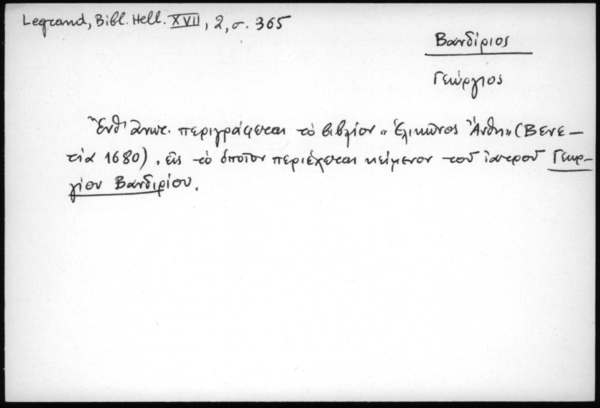 Legrand, Bibl. Hell. XVII, 2, σ. 365
Βανδίριος
Γεώργιος
Ἔνθ' ἀνωτ. περιγράφεται τὸ βιβλίον «Ἑλικῶνος Ἄνθη» (Βενε-
τία 1680), εἰς τὸ ὁποῖον περιέχεται κείμενον τοῦ ἰατροῦ Γεωρ-
γίου Βανδιρίου.